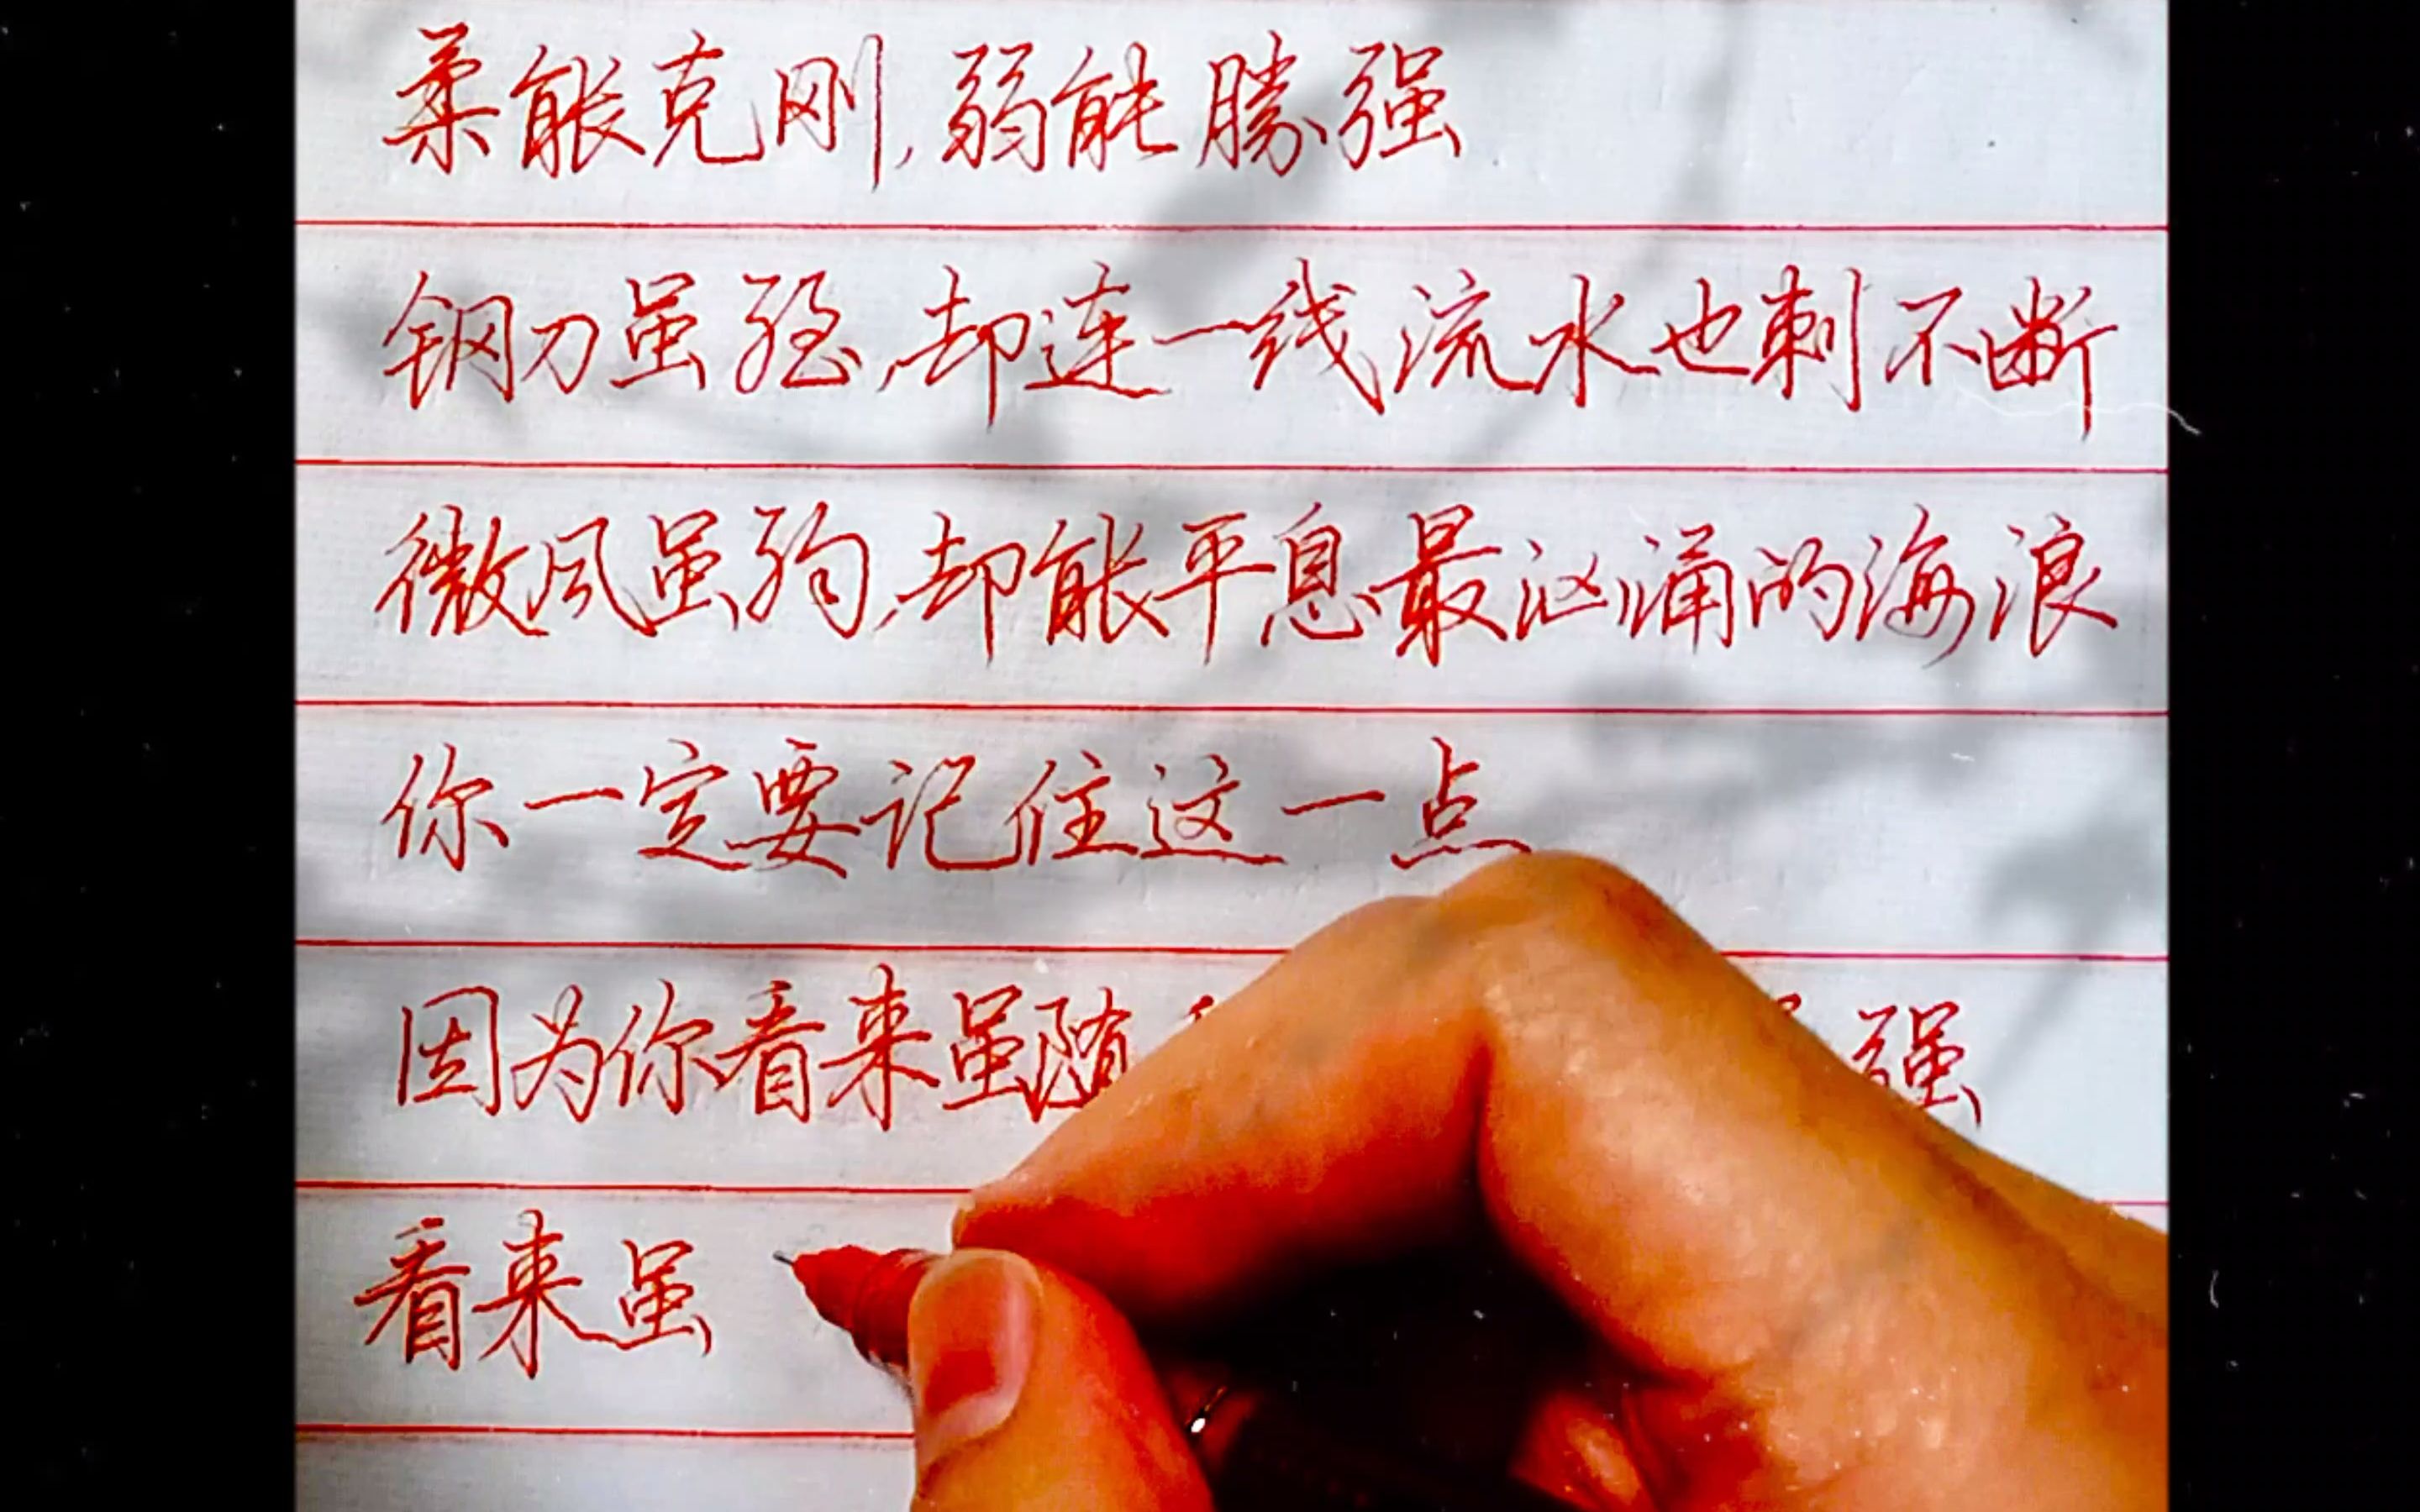 柔能克刚,弱能勝强
钢刀虽强,却连一线流水也刺不断
微风虽弱,却能平息最汹涌的海浪
你一定要记住这一点
因为你看来虽随 强
看来虽